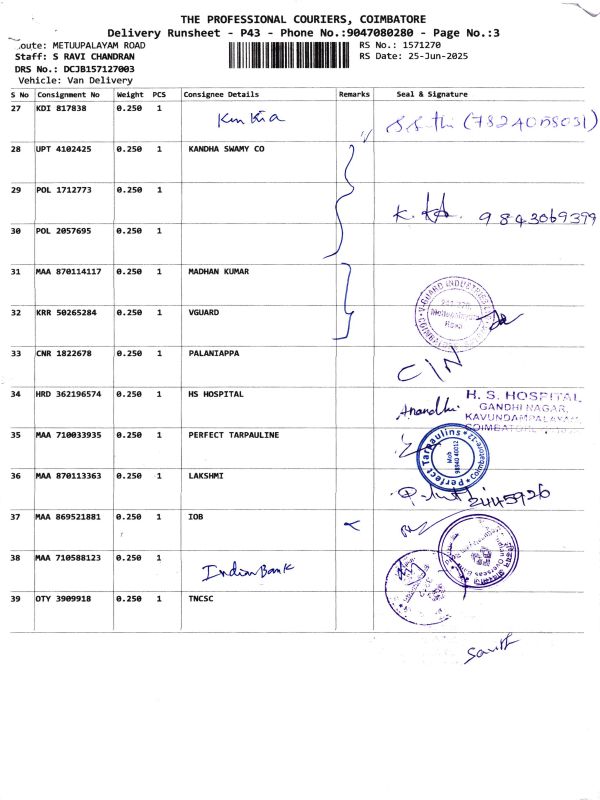 THE PROFESSIONAL COURIERS, COIMBATORE
Delivery Runsheet - P43 - Phone No.:9047080280 - Page No.:3
oute: METUUPALAYAM ROAD
RS No.: 1571270
Staff: S RAVI CHANDRAN
RS Date: 25-Jun-2025
DRS No.: DCJB157127003
Vehicle: Van Delivery
S No Consignment No Weight PCS Consignee Details Remarks Seal & Signature
27 KDI 817838 0.250 1
28 UPT 4102425 0.250 1 KANDHA SWAMY CO
29 POL 1712773 0.250 1
9843069399
30 POL 2057695 0.250 1
31 MAA 870114117 0.250 1 MADHAN KUMAR
32 KRR 50265284 0.250 1 VGUARD
V-GUARD INDUSTRIES
33 CNR 1822678 0.250 1 PALANIAPPA
C/N
34 HRD 362196574 0.250 1 HS HOSPITAL Anandhi
H. S. HOSPITAL
GANDHI NAGAR,
KAVUNDAMPALAYAM
COIMBATORE
35 MAA 710033935 0.250 1 PERFECT TARPAULINE
Perfect Tarpaulins * Coimbatore-12 *
Mob
98940 40012
36 MAA 870113363 0.250 1 LAKSHMI
37 MAA 869521881 0.250 1 IOB
Indian Overseas Bank
38 MAA 710588123 0.250 1 Indian Bank
39 OTY 3909918 0.250 1 TNCSC